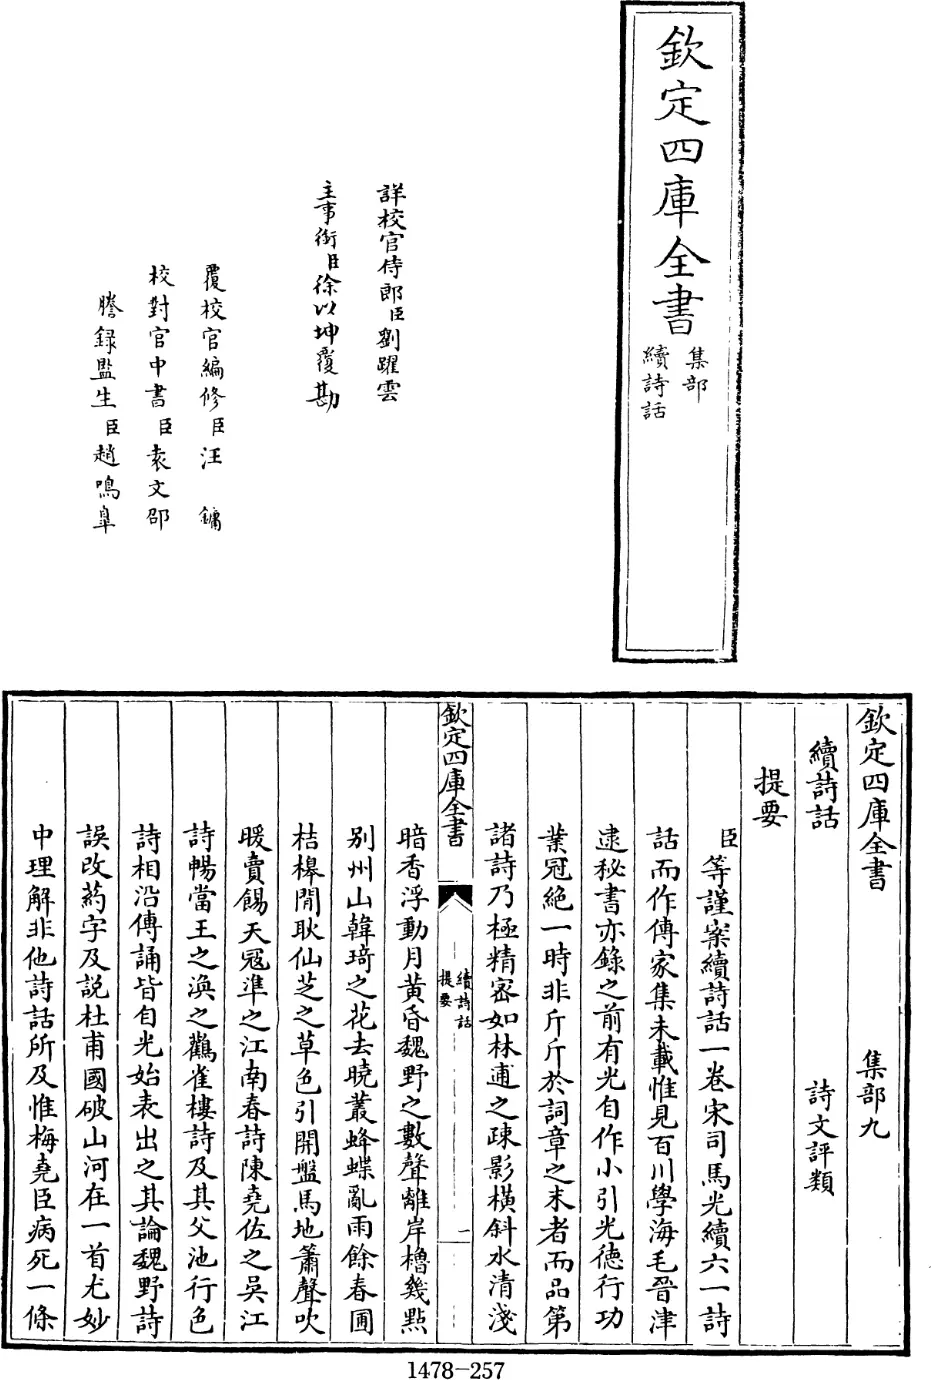 欽定四庫全書
集部
續詩話
詳校官侍郎臣劉躍雲
主事銜臣徐以坤覆勘
覆校官編修臣汪鏞
校對官中書臣袁文邵
謄録監生臣趙鳴臯
欽定四庫全書 集部九
續詩話 詩文評類
提要
臣等謹案續詩話一卷宋司馬光續六一詩
話而作傳家集未載惟見百川學海毛晉津
逮秘書亦錄之前有光自作小引光德行功
業冠絶一時非斤斤於詞章之末者而品第
諸詩乃極精密如林逋之疎影橫斜水清淺
欽定四庫全書
續詩話
提要
一
暗香浮動月黄昏魏野之數聲離岸櫓幾點
别州山韓琦之花去曉叢蜂蝶亂雨餘春圃
桔槔閒耿仙芝之草色引開盤馬地簫聲吹
暖賣餳天冦準之江南春詩陳堯佐之吳江
詩暢當王之渙之鸛雀樓詩及其父池行色
詩相沿傳誦皆自光始表出之其論魏野詩
誤改葯字及説杜甫國破山河在一首尤妙
中理解非他詩話所及惟梅堯臣病死一條
1478-257